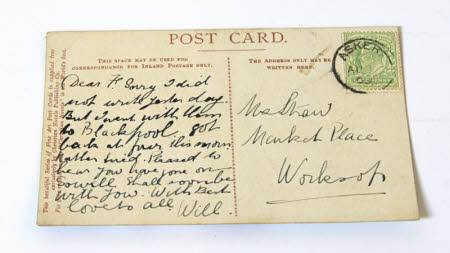 POST CARD.
THIS SPACE MAY BE USED FOR
CORRESPONDENCE FOR INLAND POSTAGE ONLY.
THE ADDRESS ONLY MAY BE
WRITTEN HERE.
ASKER
AU
Dear F. Sorry I did
not write yester day.
But I went with them
to Blackpool got
back at four this morn
Rather tired. Pleased to
hear You have gone on
so well Shall soon be
with You. With Best
love to all. Will.
Mrs Shaw
Market Place
Worksop